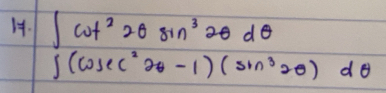 17. ∫ cot² 2θ sin³ 2θ dθ
∫ (cosec² 2θ - 1) (sin³ 2θ) dθ